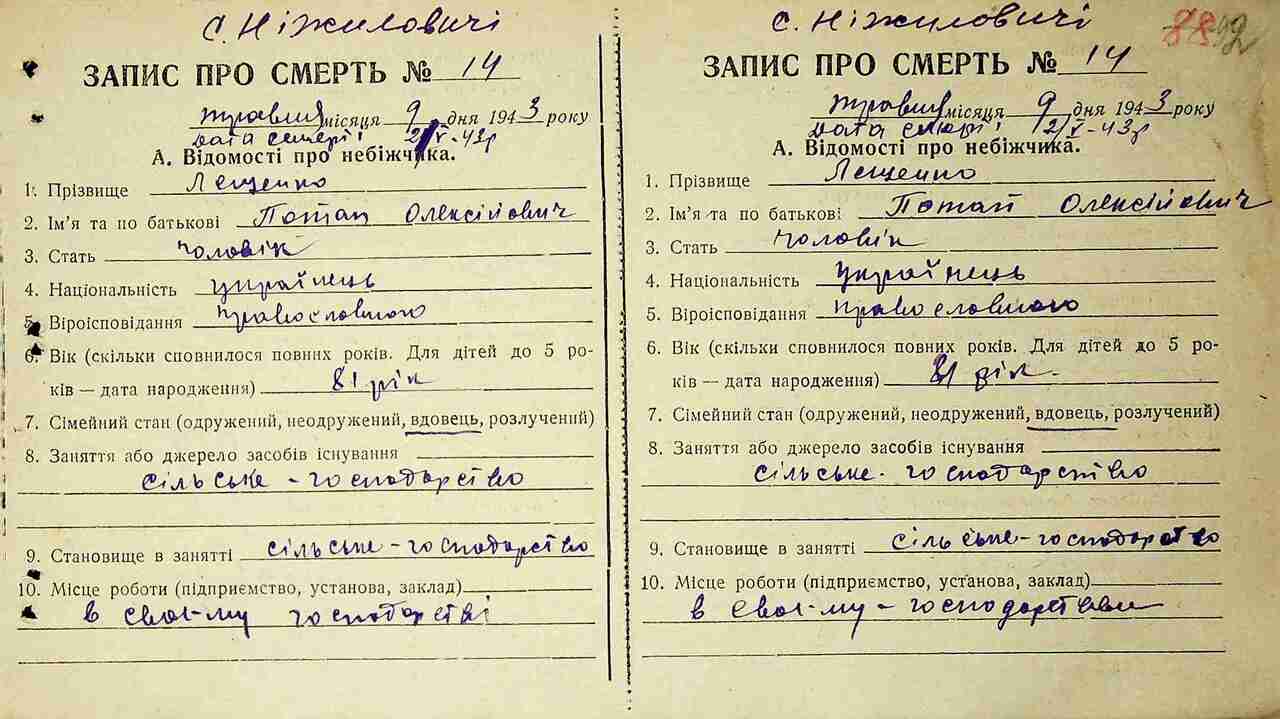 с. Ніжиловичі
ЗАПИС ПРО СМЕРТЬ № 14
травня місяця 9 дня 1943 року
Дата смерті: 2/V-43р
А. Відомості про небіжчика.
1. Прізвище Лещенко
2. Ім'я та по батькові Потап Олексійович
3. Стать чоловік
4. Національність українець
5. Віроісповідання православного
6. Вік (скільки сповнилося повних років. Для дітей до 5 ро-
ків — дата народження) 81 рік
7. Сімейний стан (одружений, неодружений, вдовець, розлучений)
8. Заняття або джерело засобів існування
сільське-господарство
9. Становище в занятті сільське-господарство
10. Місце роботи (підприємство, установа, заклад)
в своє-му господарстві
с. Ніжиловичі
88 92
ЗАПИС ПРО СМЕРТЬ № 14
травня місяця 9 дня 1943 року
Дата смерті: 2/V-43р
А. Відомості про небіжчика.
1. Прізвище Лещенко
2. Ім'я та по батькові Потап Олексійович
3. Стать чоловік
4. Національність українець
5. Віроісповідання православного
6. Вік (скільки сповнилося повних років. Для дітей до 5 ро-
ків — дата народження) 81 рік.
7. Сімейний стан (одружений, неодружений, вдовець, розлучений)
8. Заняття або джерело засобів існування
сільське-господарство
9. Становище в занятті сільське-господарство
10. Місце роботи (підприємство, установа, заклад)
в своє-му-господарстві